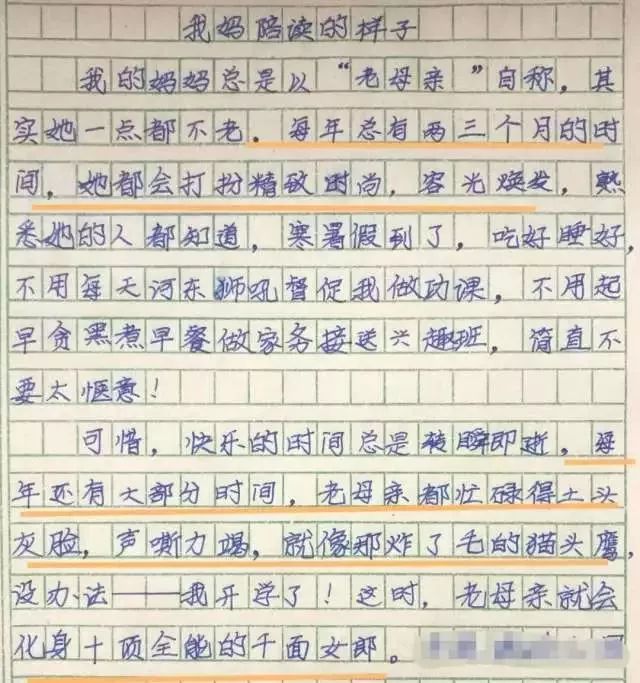 我妈陪读的样子
我的妈妈总是以“老母亲”自称，其
实她一点都不老。每年总有两三个月的时
间，她都会打扮精致时尚，容光焕发，熟
悉她的人都知道，寒暑假到了，吃好睡好，
不用每天河东狮吼督促我做功课，不用起
早贪黑煮早餐做家务接送兴趣班，简直不
要太惬意！
可惜，快乐的时间总是转瞬即逝，每
年还有大部分时间，老母亲都忙碌得土头
灰脸，声嘶力竭，就像那炸了毛的猫头鹰，
没办法——我开学了！这时，老母亲就会
化身十项全能的千面女郎。